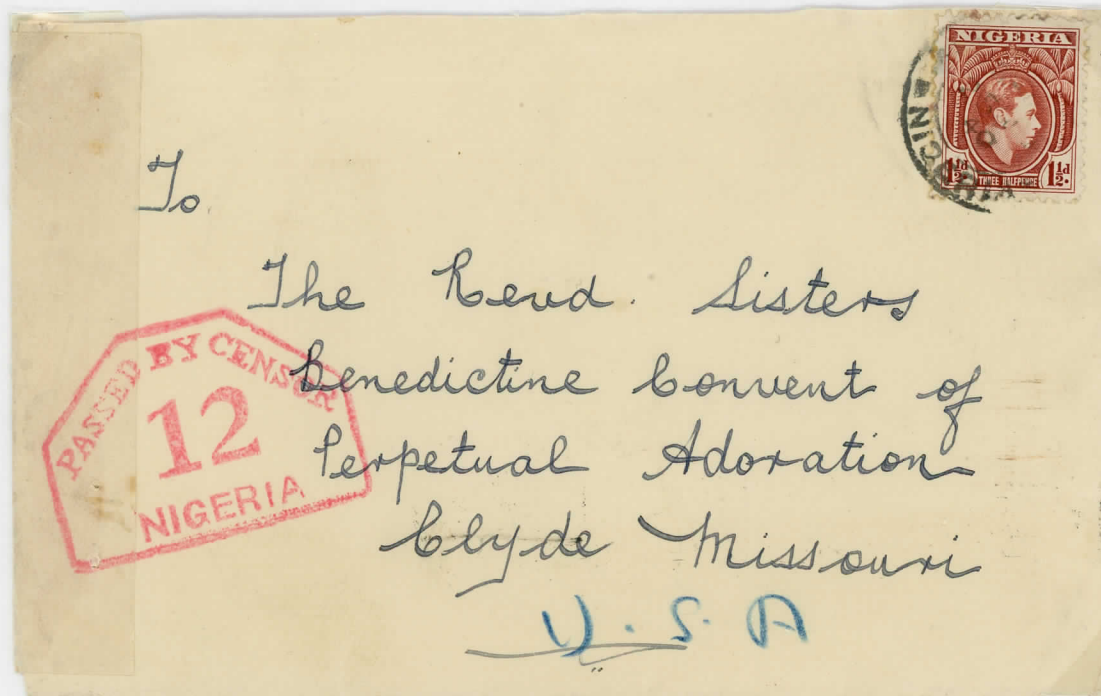 NIGERIA
1½d THREE HALFPENCE 1½d.
NIGERIA
To
The Revd. Sisters
Benedictine Convent of
Perpetual Adoration
Clyde Missouri
U.S.A
PASSED BY CENSOR
12
NIGERIA